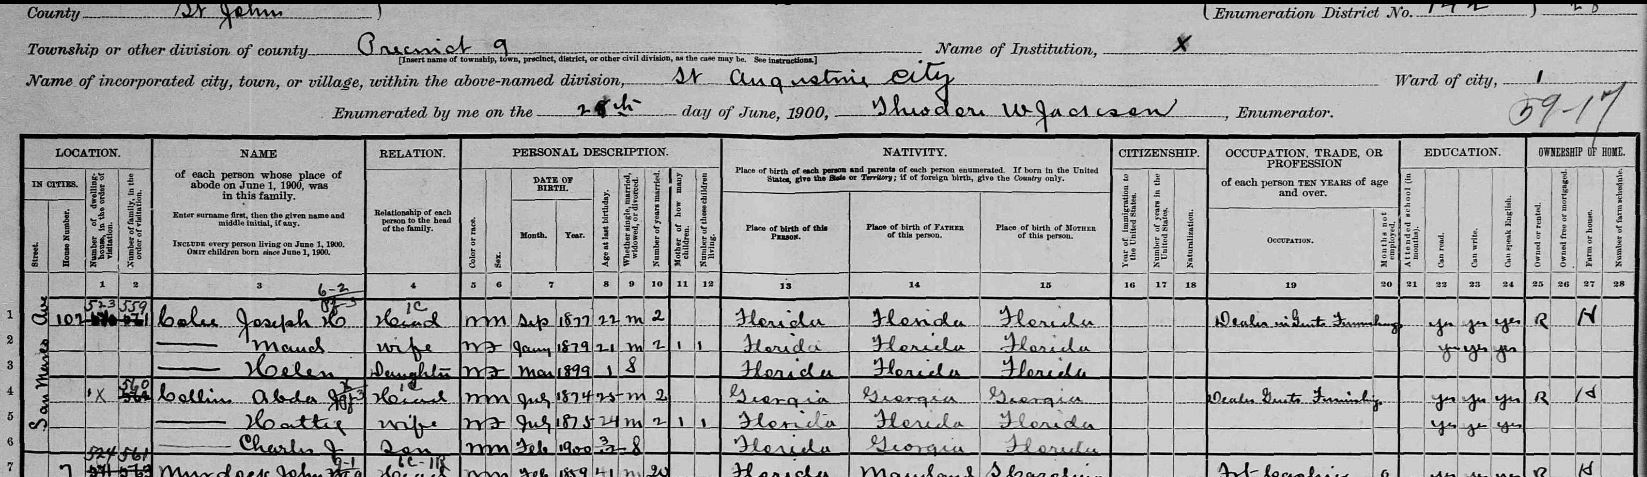 County St Johns
Enumeration District No. 142
28
Township or other division of county Precinct 9 Name of Institution, X
[Insert name of township, town, precinct, district, or other civil division, as the case may be. See instructions.]
Name of incorporated city, town, or village, within the above-named division, St Augustine City Ward of city, 1
Enumerated by me on the 28th day of June, 1900, Theodore W Jackson, Enumerator.
59-17
LOCATION. NAME RELATION. PERSONAL DESCRIPTION. NATIVITY. CITIZENSHIP. OCCUPATION, TRADE, OR PROFESSION EDUCATION. OWNERSHIP OF HOME.
IN CITIES.
Street.
House Number.
Number of dwelling-house, in the order of visitation.
Number of family, in the order of visitation.
of each person whose place of abode on June 1, 1900, was in this family.
Enter surname first, then the given name and middle initial, if any.
INCLUDE every person living on June 1, 1900.
OMIT children born since June 1, 1900.
Relationship of each person to the head of the family.
Color or race.
Sex.
DATE OF BIRTH.
Month. Year.
Age at last birthday.
Whether single, married, widowed, or divorced.
Number of years married.
Mother of how many children.
Number of these children living.
Place of birth of each person and parents of each person enumerated. If born in the United States, give the State or Territory; if of foreign birth, give the Country only.
Place of birth of this PERSON.
Place of birth of FATHER of this person.
Place of birth of MOTHER of this person.
Year of immigration to the United States.
Number of years in the United States.
Naturalization.
of each person TEN YEARS of age and over.
OCCUPATION.
Months not employed.
Attended school (in months).
Can read.
Can write.
Can speak English.
Owned or rented.
Owned free or mortgaged.
Farm or house.
Number of farm schedule.
1 2 3 4 5 6 7 8 9 10 11 12 13 14 15 16 17 18 19 20 21 22 23 24 25 26 27 28
6-2
San Marco Ave
523 559
1 102 Colee Joseph H Head W M Sep 1877 22 M 2 Florida Florida Florida Dealer in Gents Furnishings yes yes yes R H
2 Maud wife W F Jany 1879 21 M 2 1 1 Florida Florida Florida yes yes yes
3 Helen Daughter W F Mar 1899 1 S Florida Florida Florida
560
4 X Collins Abda Head W M July 1874 25 M 2 Georgia Georgia Georgia Dealer Gents Furnishings yes yes yes R H
5 Hattie wife W F July 1875 24 M 2 1 1 Florida Florida Florida yes yes yes
6 Charles J Son W M Feb 1900 3/12 S Florida Georgia Florida
524 561
7 7 John Head W M Feb 1859 41 M 20 Florida Maryland R H